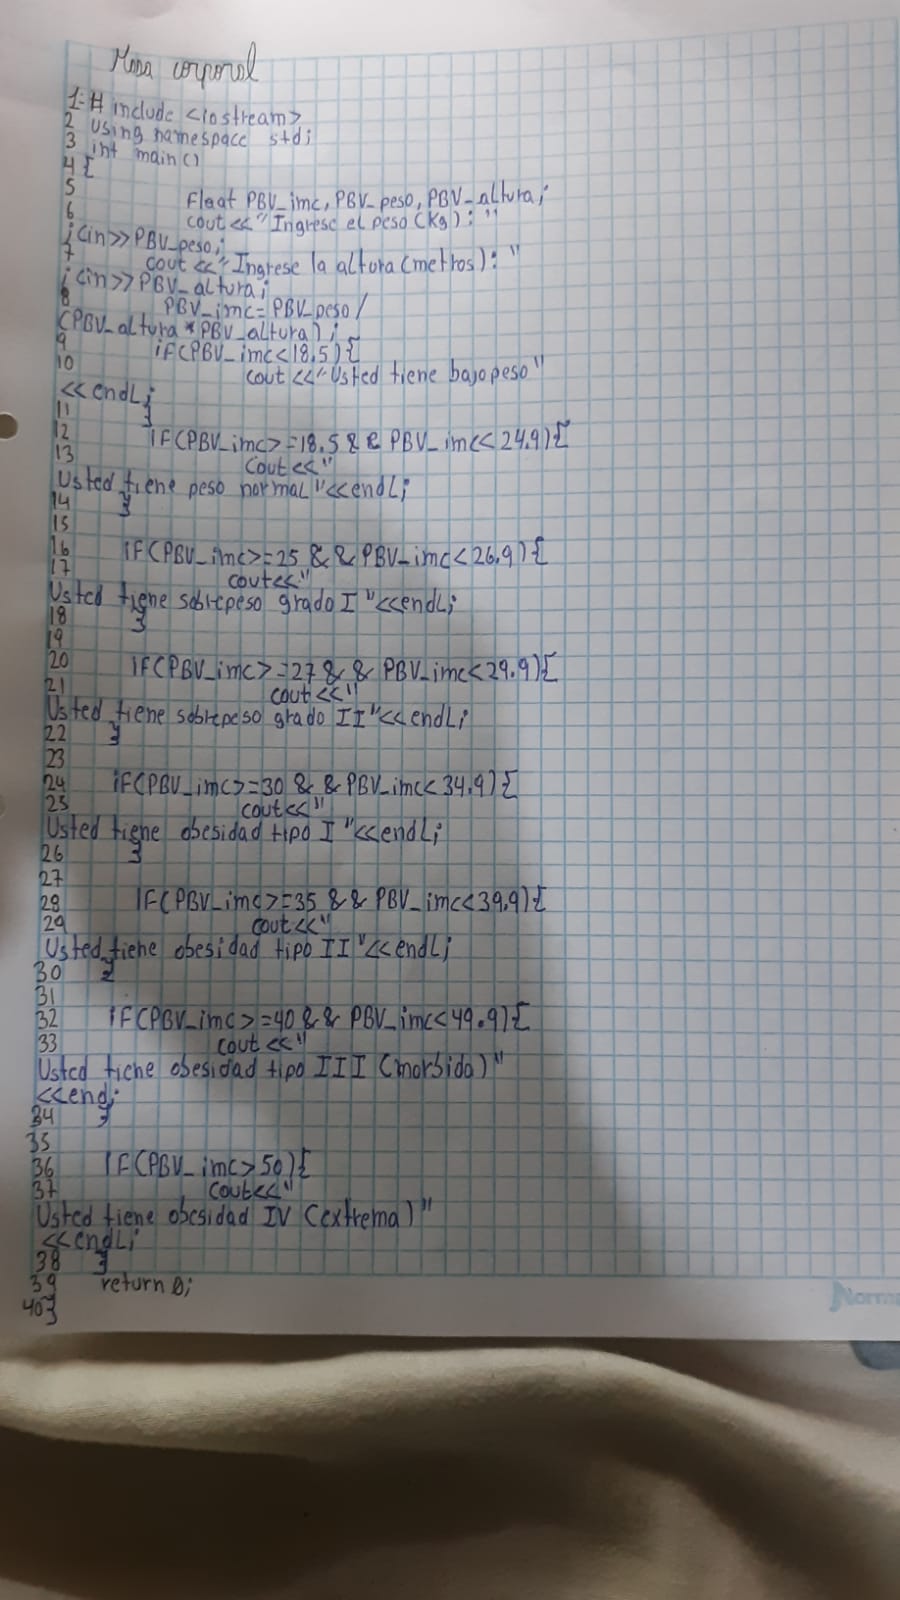 Masa corporal
1.# include <iostream>
2 using namespace std;
3 int main()
4 {
5 Float PBV_imc, PBV_peso, PBV_altura;
6 cout <<"Ingrese el peso (Kg): "
;cin>>PBV_peso;
7 cout <<"Ingrese la altura (metros): "
;cin>>PBV_altura;
8 PBV_imc= PBV_peso/
(PBV_altura*PBV_altura);
9 if(PBV_imc<18.5){
10 cout <<"Usted tiene bajo peso"
<<endl;
11 }
12 if(PBV_imc>=18.5 && PBV_imc<24.9){
13 cout<<"
Usted tiene peso normal"<<endl;
14 }
15
16 if(PBV_imc>=25 && PBV_imc<26.9){
17 cout<<"
Usted tiene sobrepeso grado I"<<endl;
18 }
19
20 if(PBV_imc>=27 && PBV_imc<29.9){
21 cout<<"
Usted tiene sobrepeso grado II"<<endl;
22 }
23
24 if(PBV_imc>=30 && PBV_imc<34.9){
25 cout<<"
Usted tiene obesidad tipo I"<<endl;
26 }
27
28 if(PBV_imc>=35 && PBV_imc<39.9){
29 cout<<"
Usted tiene obesidad tipo II"<<endl;
30 }
31
32 if(PBV_imc>=40 && PBV_imc<49.9){
33 cout <<"
Usted tiene obesidad tipo III (morbida)"
<<end;
34 }
35
36 if(PBV_imc>50){
37 cout<<"
Usted tiene obesidad IV (extrema)"
<<endl;
38 }
39 return 0;
40}
Norma